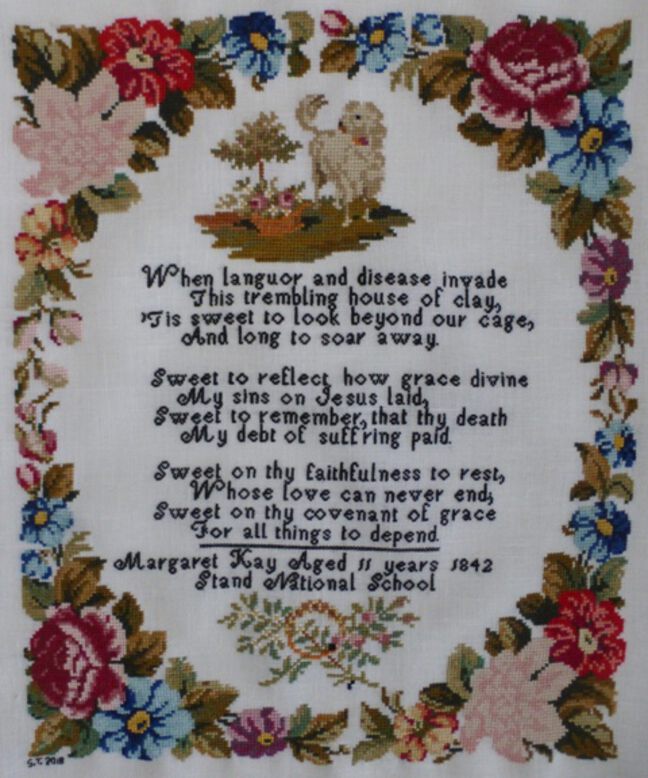 When languor and disease invade
This trembling house of clay,
'Tis sweet to look beyond our cage,
And long to soar away.
Sweet to reflect how grace divine
My sins on Jesus laid,
Sweet to remember, that thy death
My debt of suff'ring paid.
Sweet on thy faithfulness to rest,
Whose love can never end,
Sweet on thy covenant of grace
For all things to depend.
Margaret Kay Aged 11 years 1842
Stand National School
S.T. 2018